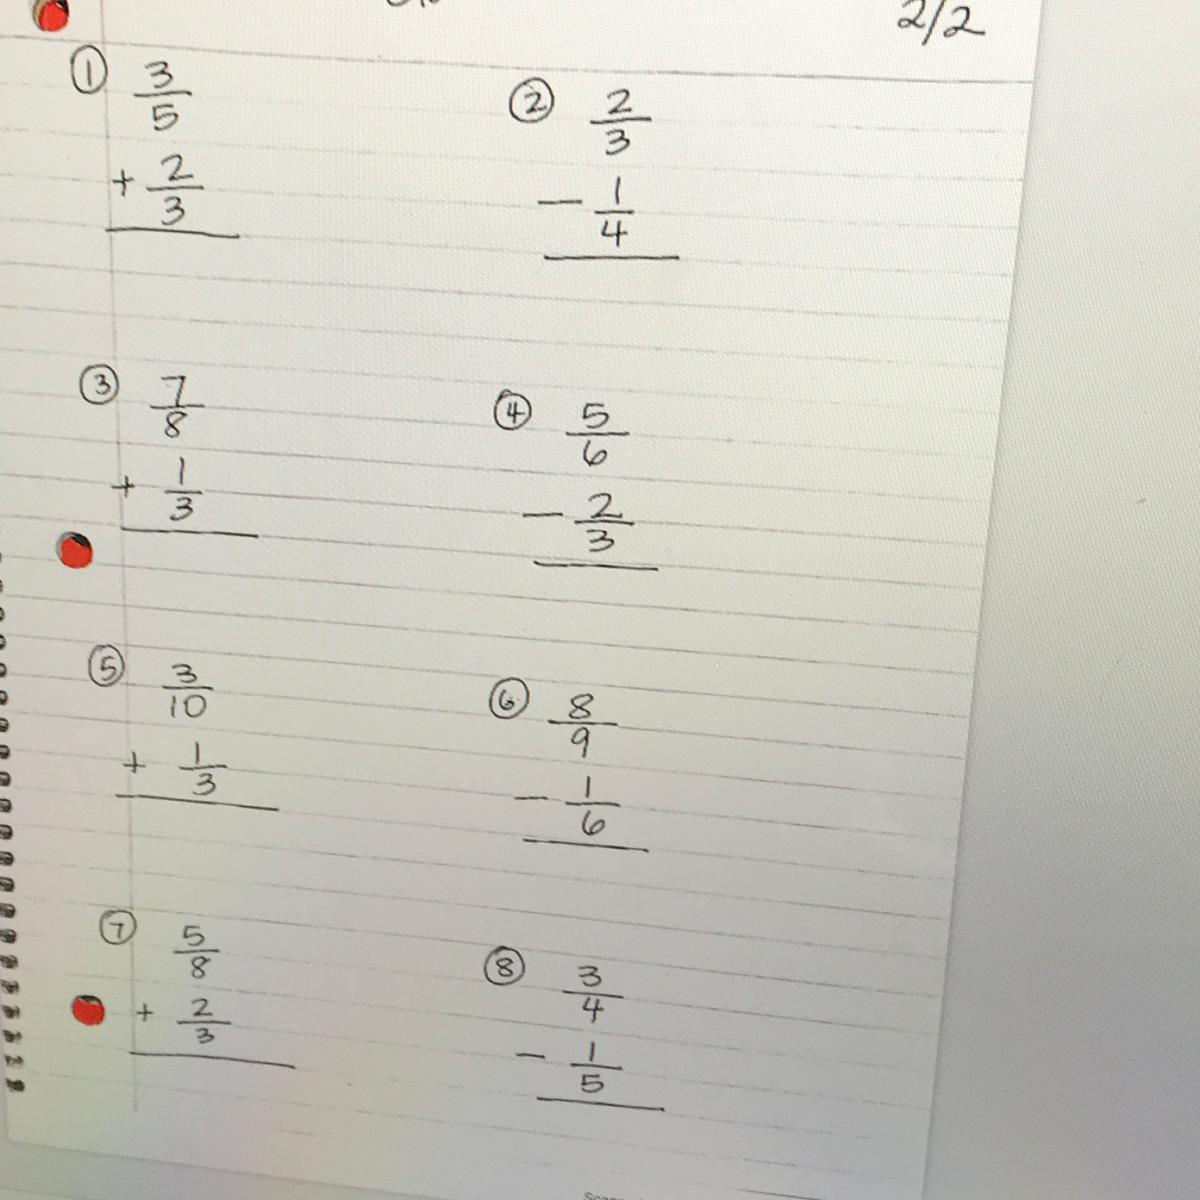 2/2
① 3/5 + 2/3
② 2/3 - 1/4
③ 7/8 + 1/3
④ 5/6 - 2/3
⑤ 3/10 + 1/3
⑥ 8/9 - 1/6
⑦ 5/8 + 2/3
⑧ 3/4 - 1/5